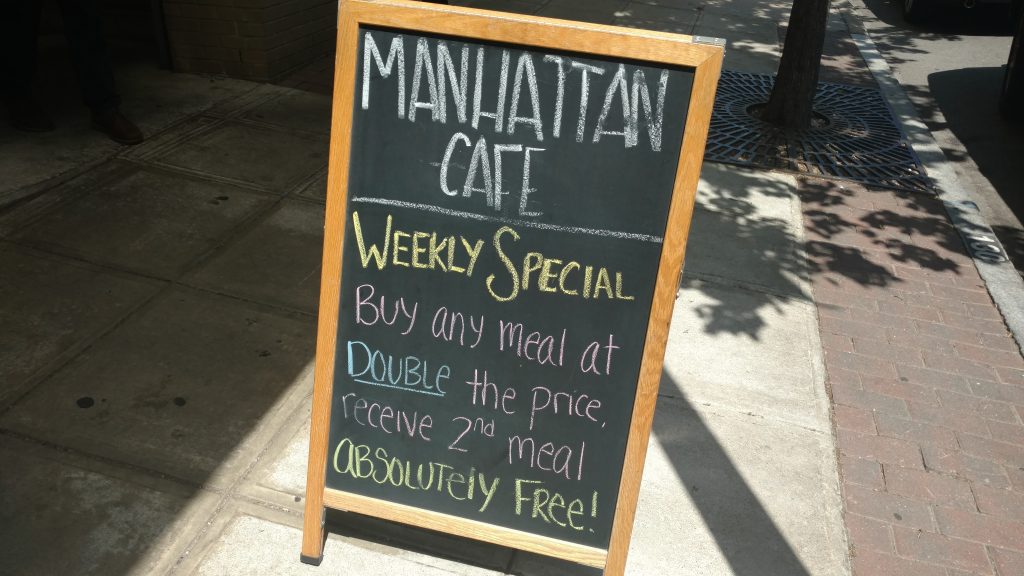 MANHATTAN
CAFE
WEEKLY SPECIAL
Buy any meal at
DOUBLE the price,
receive 2nd meal
ABSOLUTELY FREE!